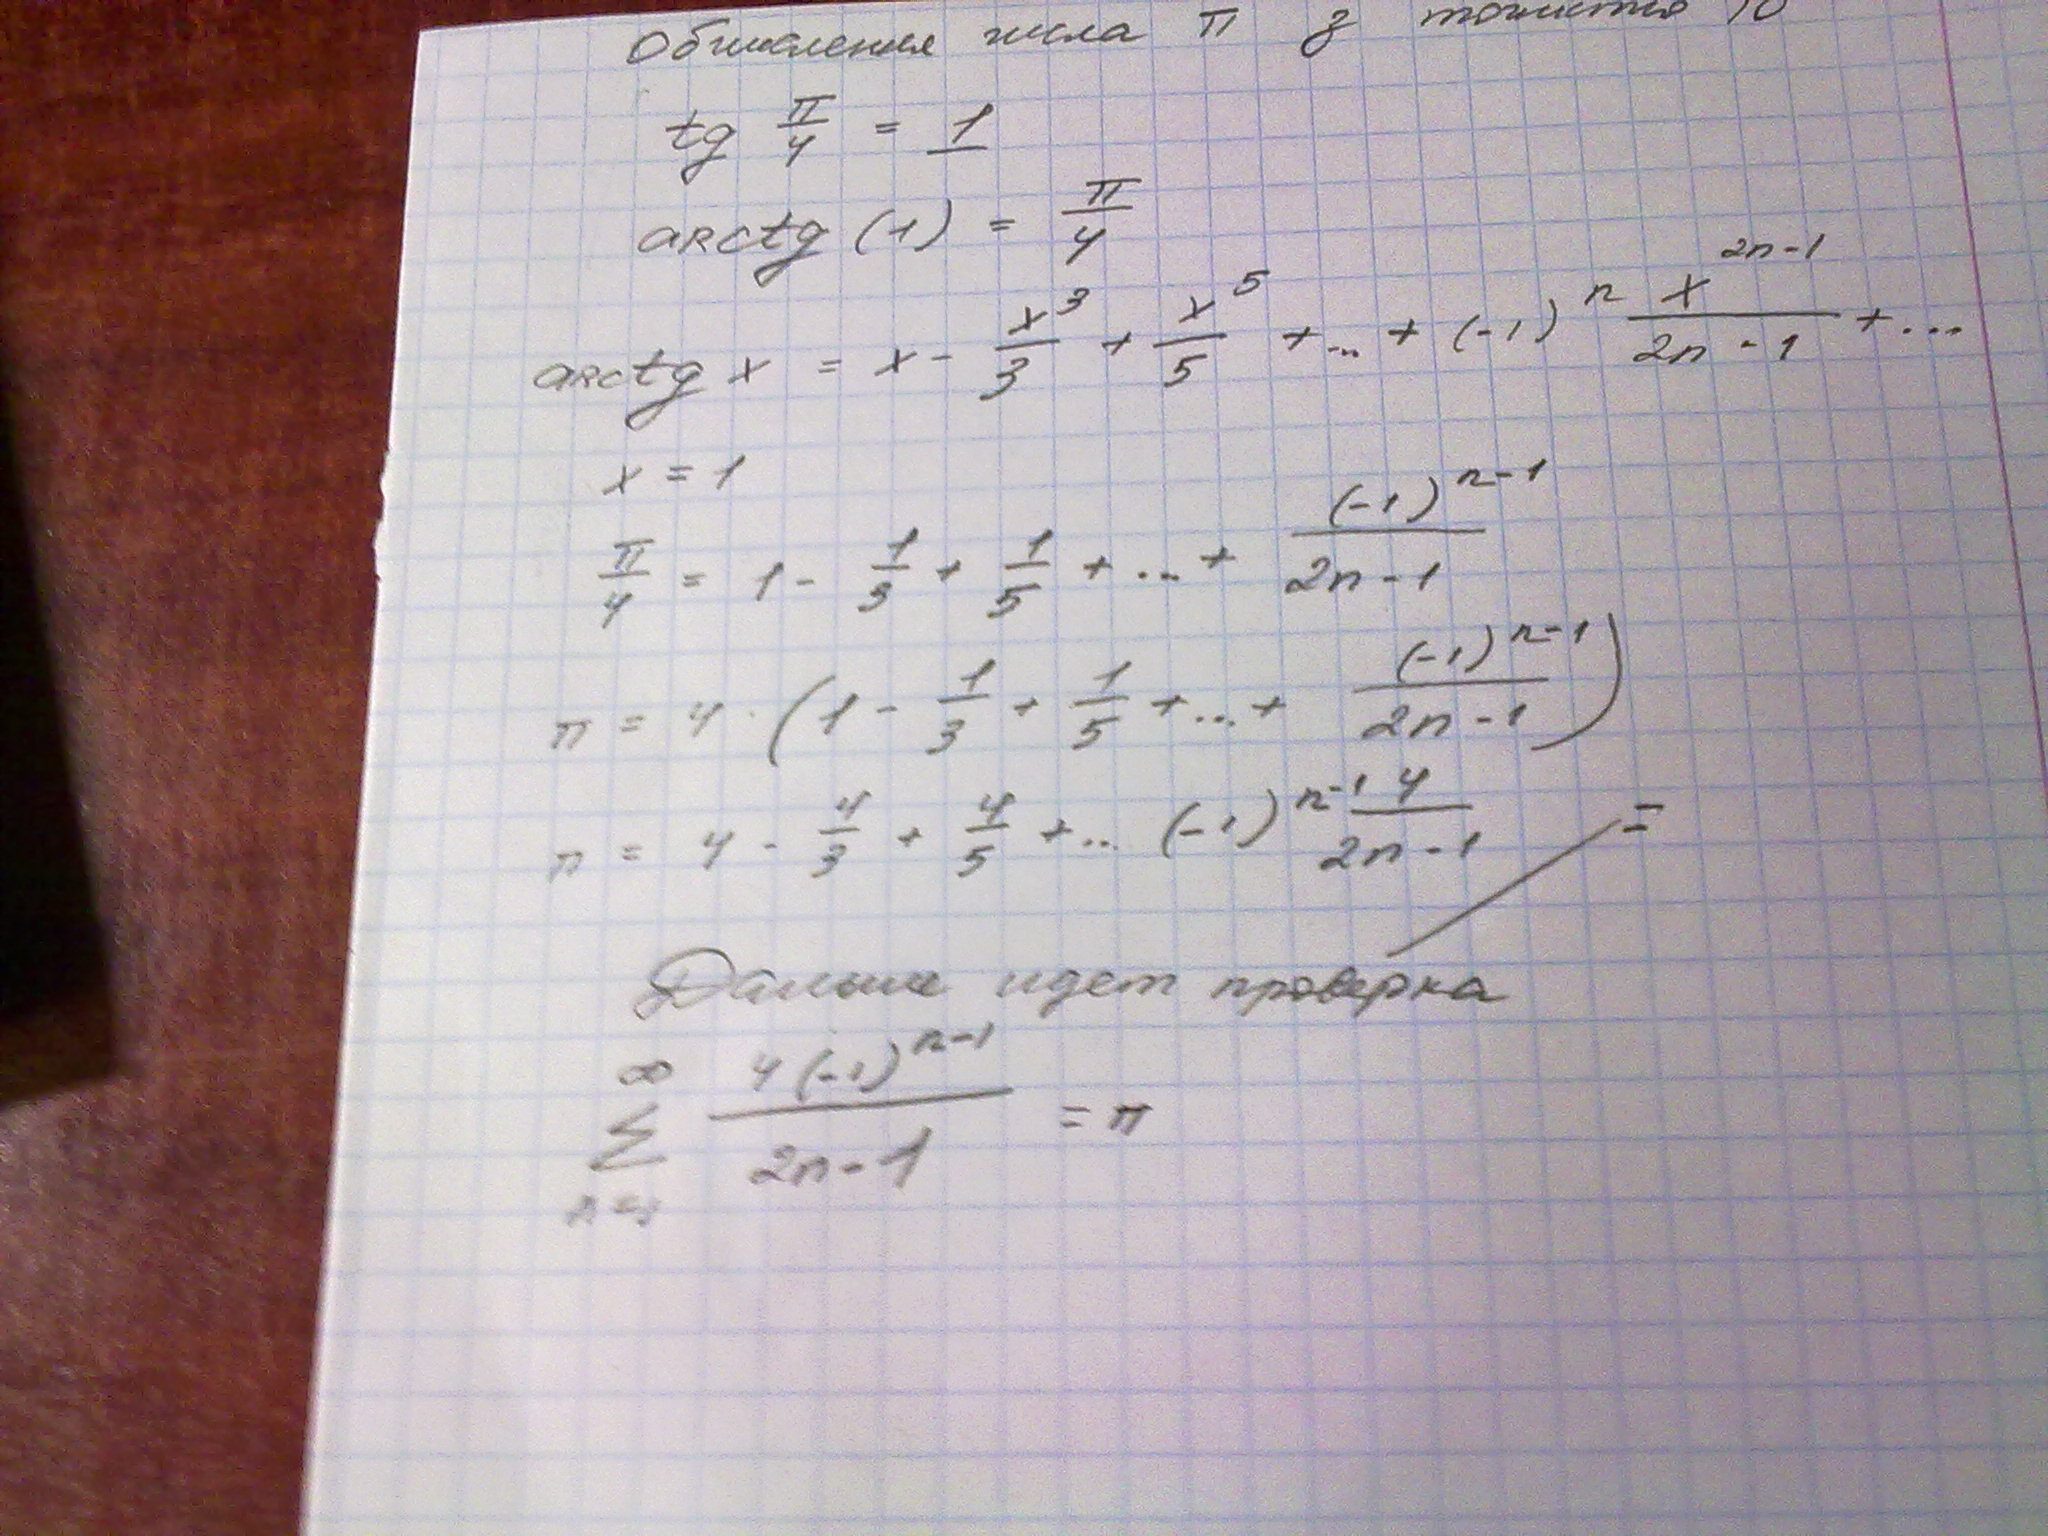 Обчислення числа π з точністю 10
tg π/4 = 1
arctg (1) = π/4
arctg x = x - x³/3 + x⁵/5 + ... + (-1)ⁿ x²ⁿ⁻¹/2n-1 + ...
x = 1
π/4 = 1 - 1/3 + 1/5 + ... + (-1)ⁿ⁻¹/2n-1
π = 4 · (1 - 1/3 + 1/5 + ... + (-1)ⁿ⁻¹/2n-1)
π = 4 - 4/3 + 4/5 + ... (-1)ⁿ⁻¹ 4/2n-1 =
Дальше идет проверка
∞ ∑ n=1 4(-1)ⁿ⁻¹/2n-1 = π